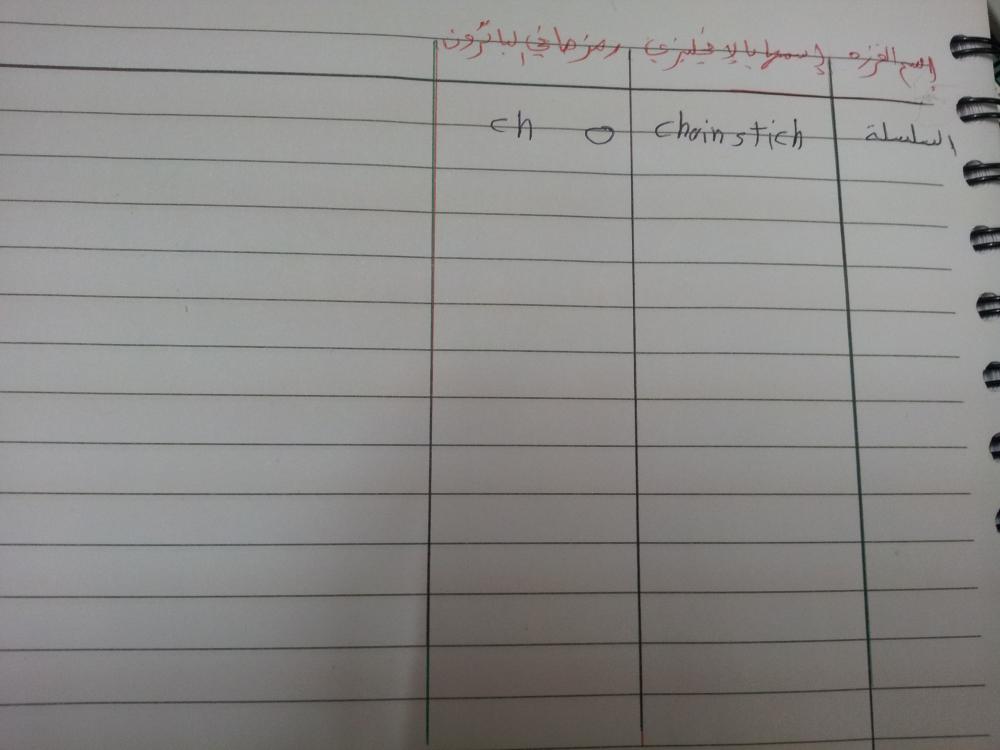 إسم الغرزه إسمها بالإنجليزي رمزها في الباترون
السلسلة chain stich ch